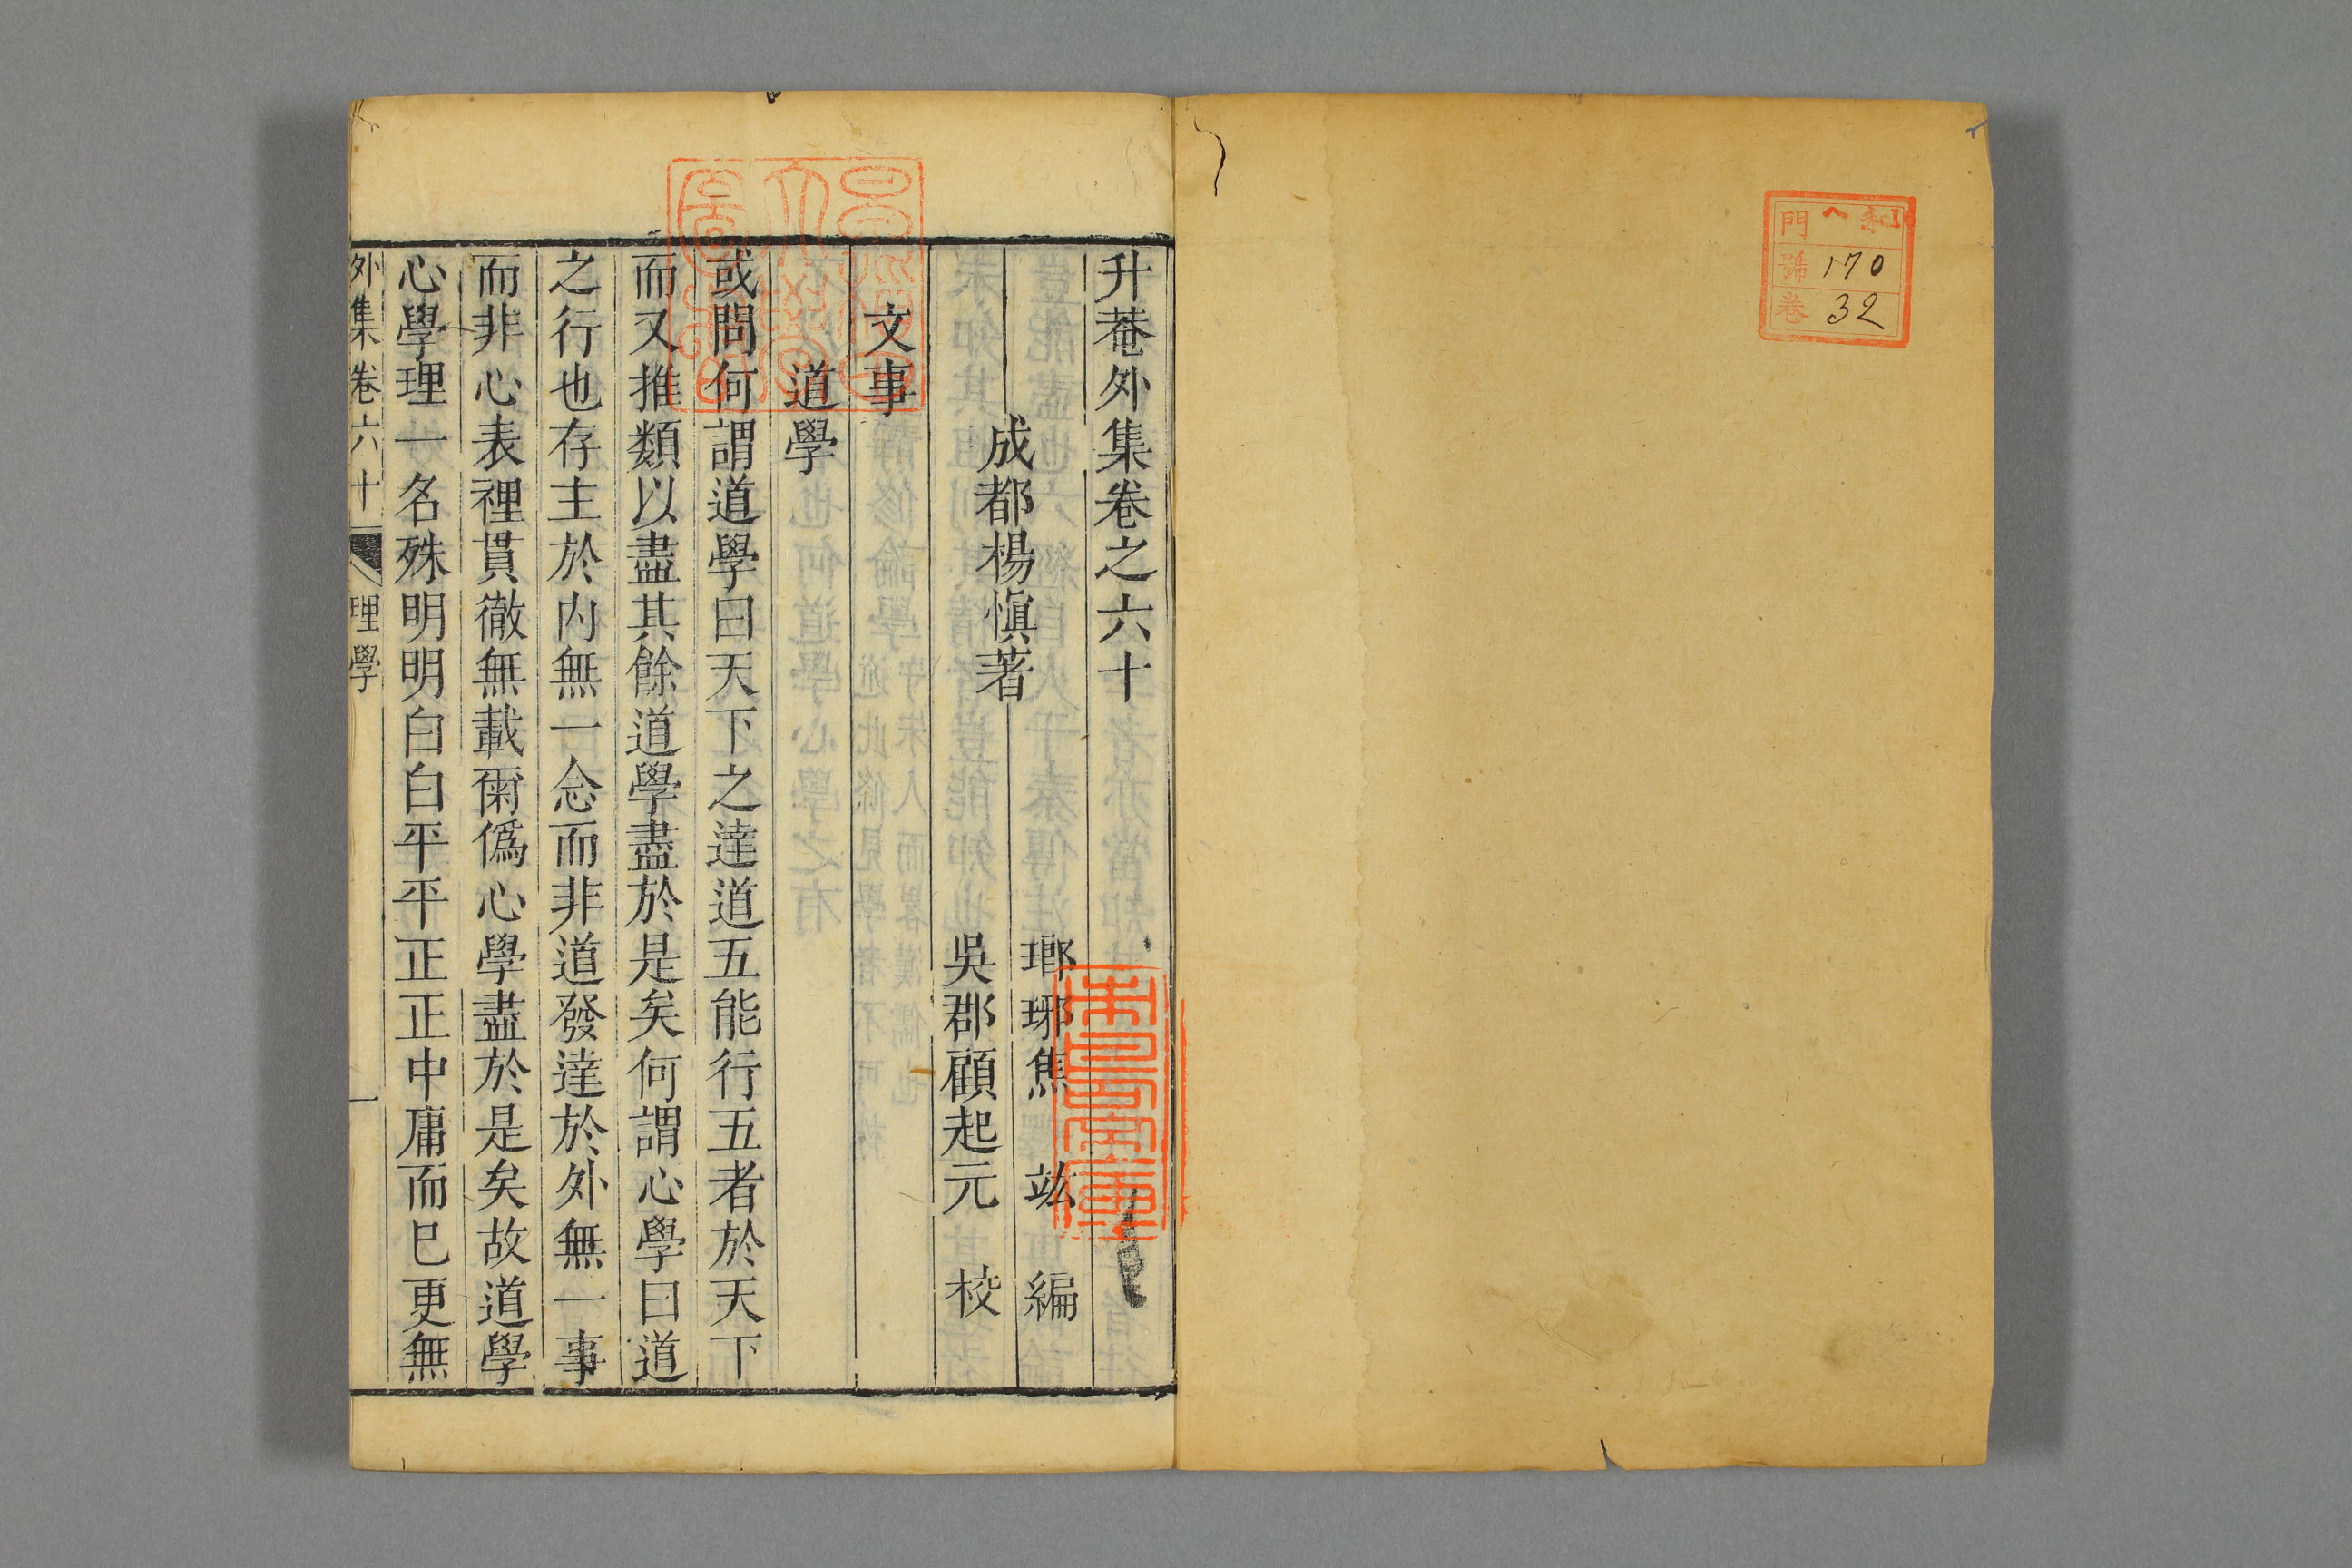 門 ヘ
號 170
卷 32
升菴外集卷之六十
成都楊慎著
瑯琊焦竑編
吳郡顧起元校
文事
道學
或問何謂道學曰天下之達道五能行五者於天下
而又推類以盡其餘道學盡於是矣何謂心學曰道
之行也存主於内無一念而非道發達於外無一事
而非心表裡貫徹無載爾偽心學盡於是矣故道學
心學理一名殊明明白白平平正正中庸而已更無
外集卷六十 理學 一